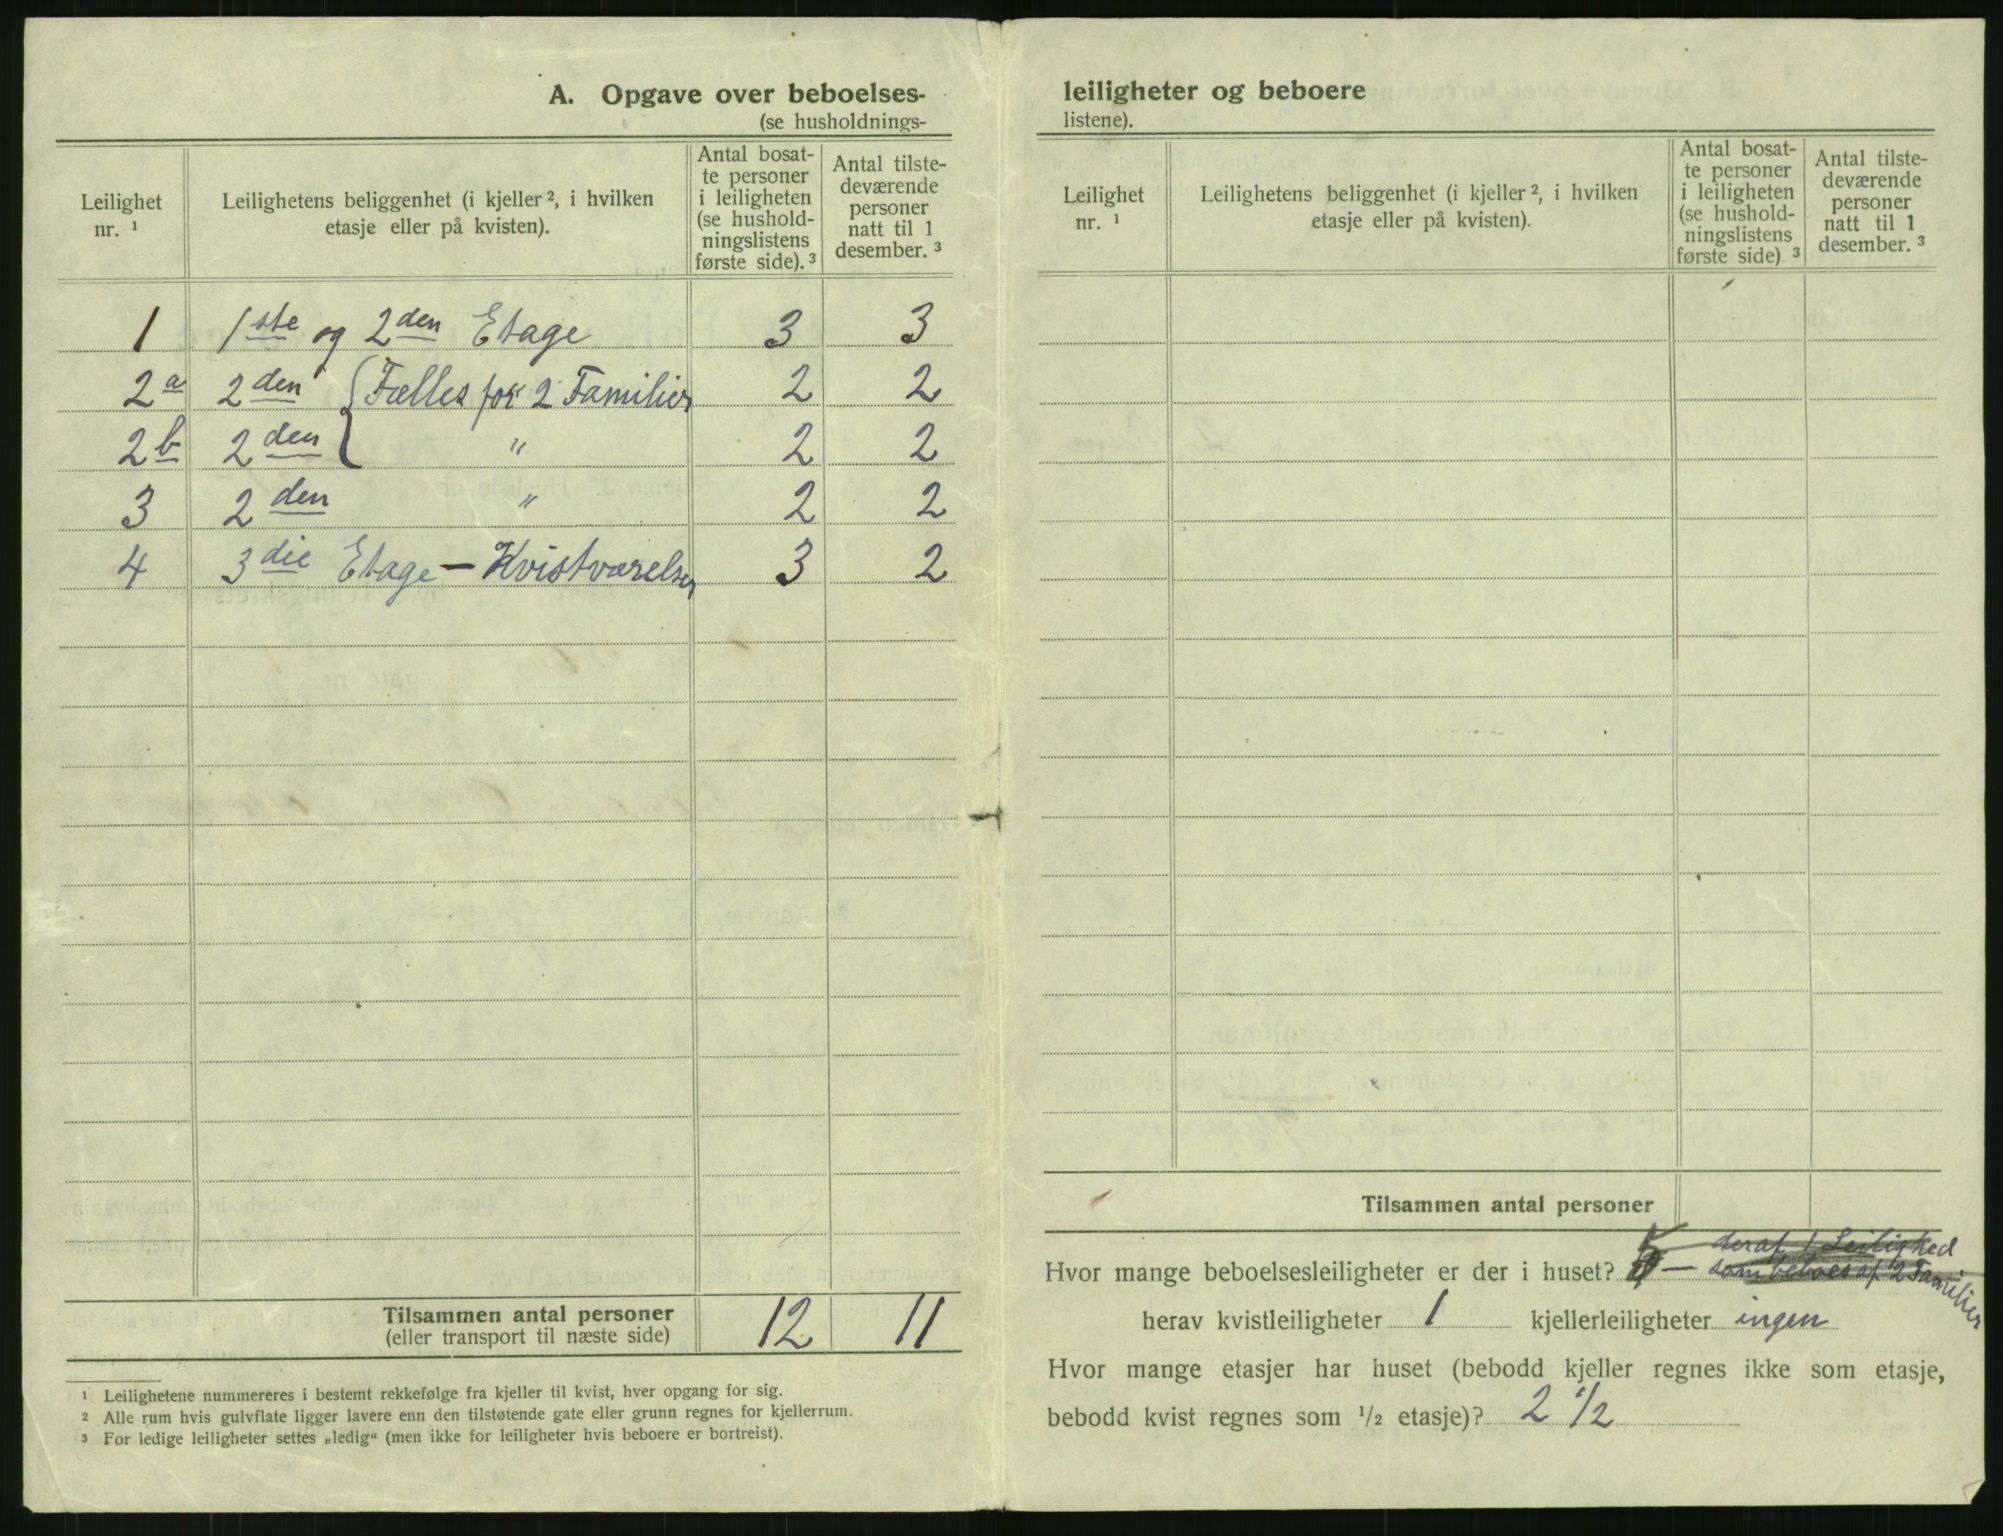 A. Opgave over beboelses-
(se husholdnings-
Leilighet
nr. ¹
Leilighetens beliggenhet (i kjeller ², i hvilken
etasje eller på kvisten).
Antal bosat-
te personer
i leiligheten
(se hushold-
ningslistens
første side). ³
Antal tilste-
deværende
personer
natt til 1
desember. ³
1 1ste og 2den Etage 3 3
2a 2den { Fælles for 2 Familier 2 2
2b 2den " 2 2
3 2den " 2 2
4 3die Etage — Kvistværelser 3 2
Tilsammen antal personer 12 11
(eller transport til næste side)
¹ Leilighetene nummereres i bestemt rekkefølge fra kjeller til kvist, hver opgang for sig.
² Alle rum hvis gulvflate ligger lavere enn den tilstøtende gate eller grunn regnes for kjellerrum.
³ For ledige leiligheter settes „ledig“ (men ikke for leiligheter hvis beboere er bortreist).
leiligheter og beboere
listene).
Leilighet
nr. ¹
Leilighetens beliggenhet (i kjeller ², i hvilken
etasje eller på kvisten).
Antal bosat-
te personer
i leiligheten
(se hushold-
ningslistens
første side) ³
Antal tilste-
deværende
personer
natt til 1
desember. ³
Tilsammen antal personer
deraf 1 Leilighed
Hvor mange beboelsesleiligheter er der i huset? — som beboes af 2 Familier
herav kvistleiligheter 1 kjellerleiligheter ingen
Hvor mange etasjer har huset (bebodd kjeller regnes ikke som etasje,
bebodd kvist regnes som ½ etasje)? 2 1/2